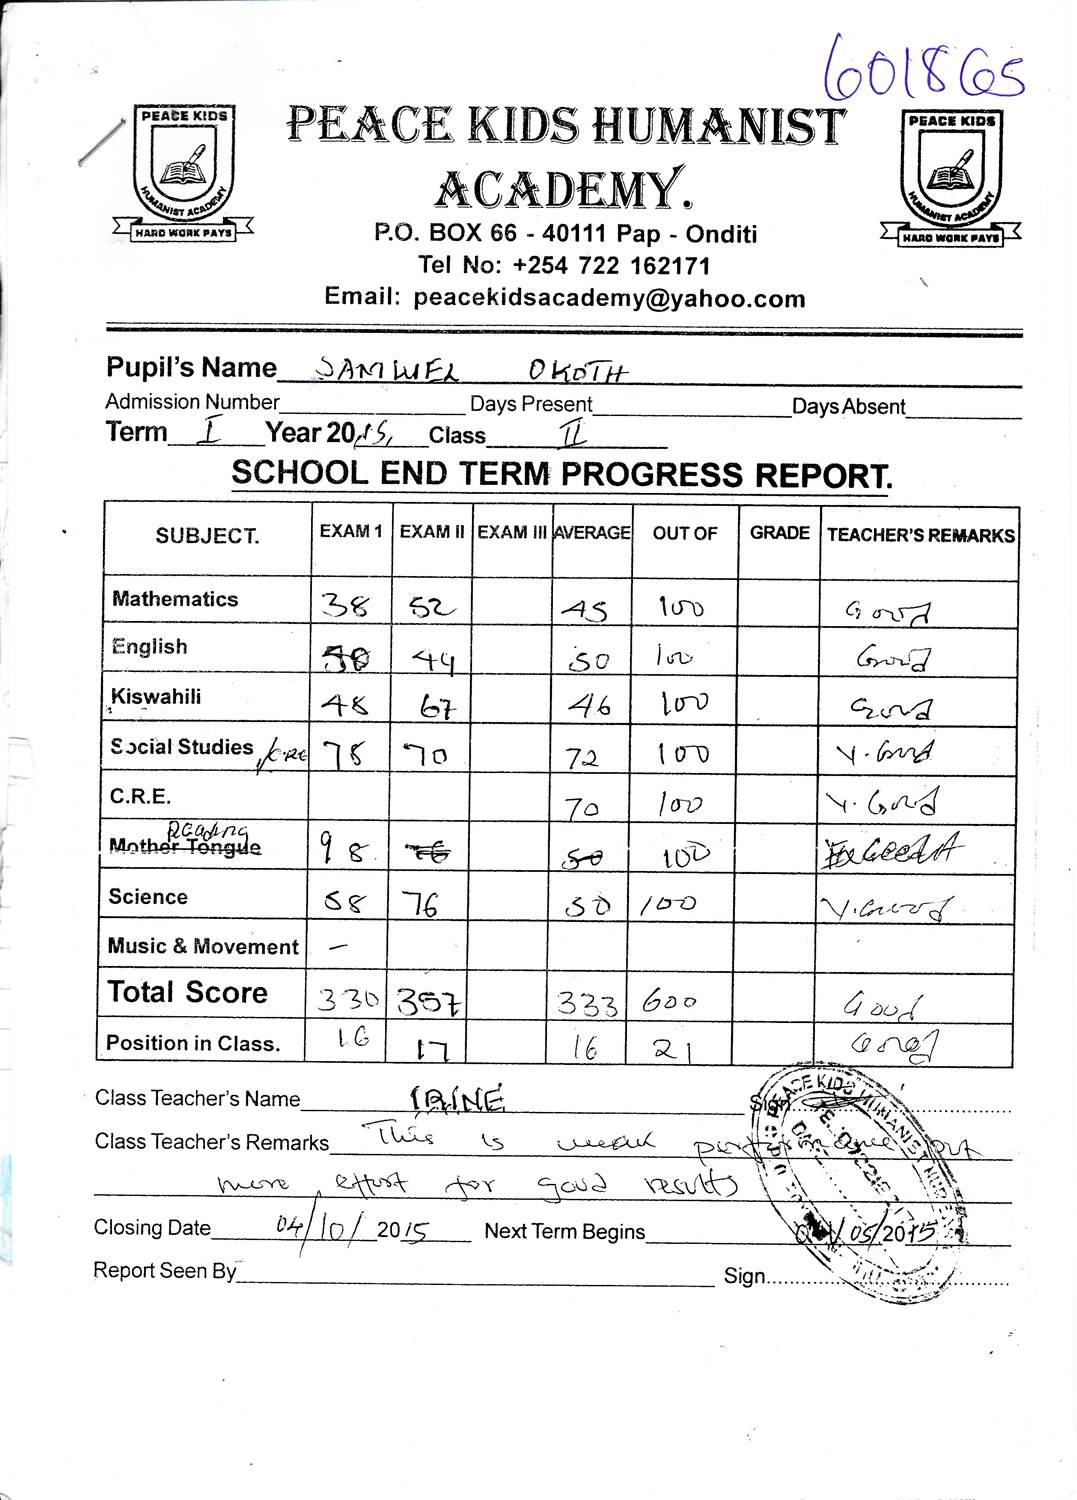 601865
PEACE KIDS
HUMANIST ACADEMY
HARD WORK PAYS
PEACE KIDS HUMANIST
ACADEMY.
PEACE KIDS
HUMANIST ACADEMY
HARD WORK PAYS
P.O. BOX 66 - 40111 Pap - Onditi
Tel No: +254 722 162171
Email: peacekidsacademy@yahoo.com
Pupil's Name SAMWEL OKOTH
Admission Number Days Present Days Absent
Term I Year 2015, Class II
SCHOOL END TERM PROGRESS REPORT.
SUBJECT. EXAM 1 EXAM II EXAM III AVERAGE OUT OF GRADE TEACHER'S REMARKS
Mathematics 38 52 45 100 Good
English 44 50 100 Good
Kiswahili 48 67 46 100 Good
Social Studies /C.RE 78 70 72 100 V. Good
C.R.E. 70 100 V. Good
Reading
Mother Tongue 98 76 50 100
Science 58 76 50 100 V. Good
Music & Movement –
Total Score 330 357 333 600 Good
Position in Class. 16 17 16 21 Good
Class Teacher's Name IRINE Sign
Class Teacher's Remarks This is weak performance put
more effort for good results
Closing Date 04/10/2015 Next Term Begins 05/2015
Report Seen By Sign
PEACE KIDS HUMANIST